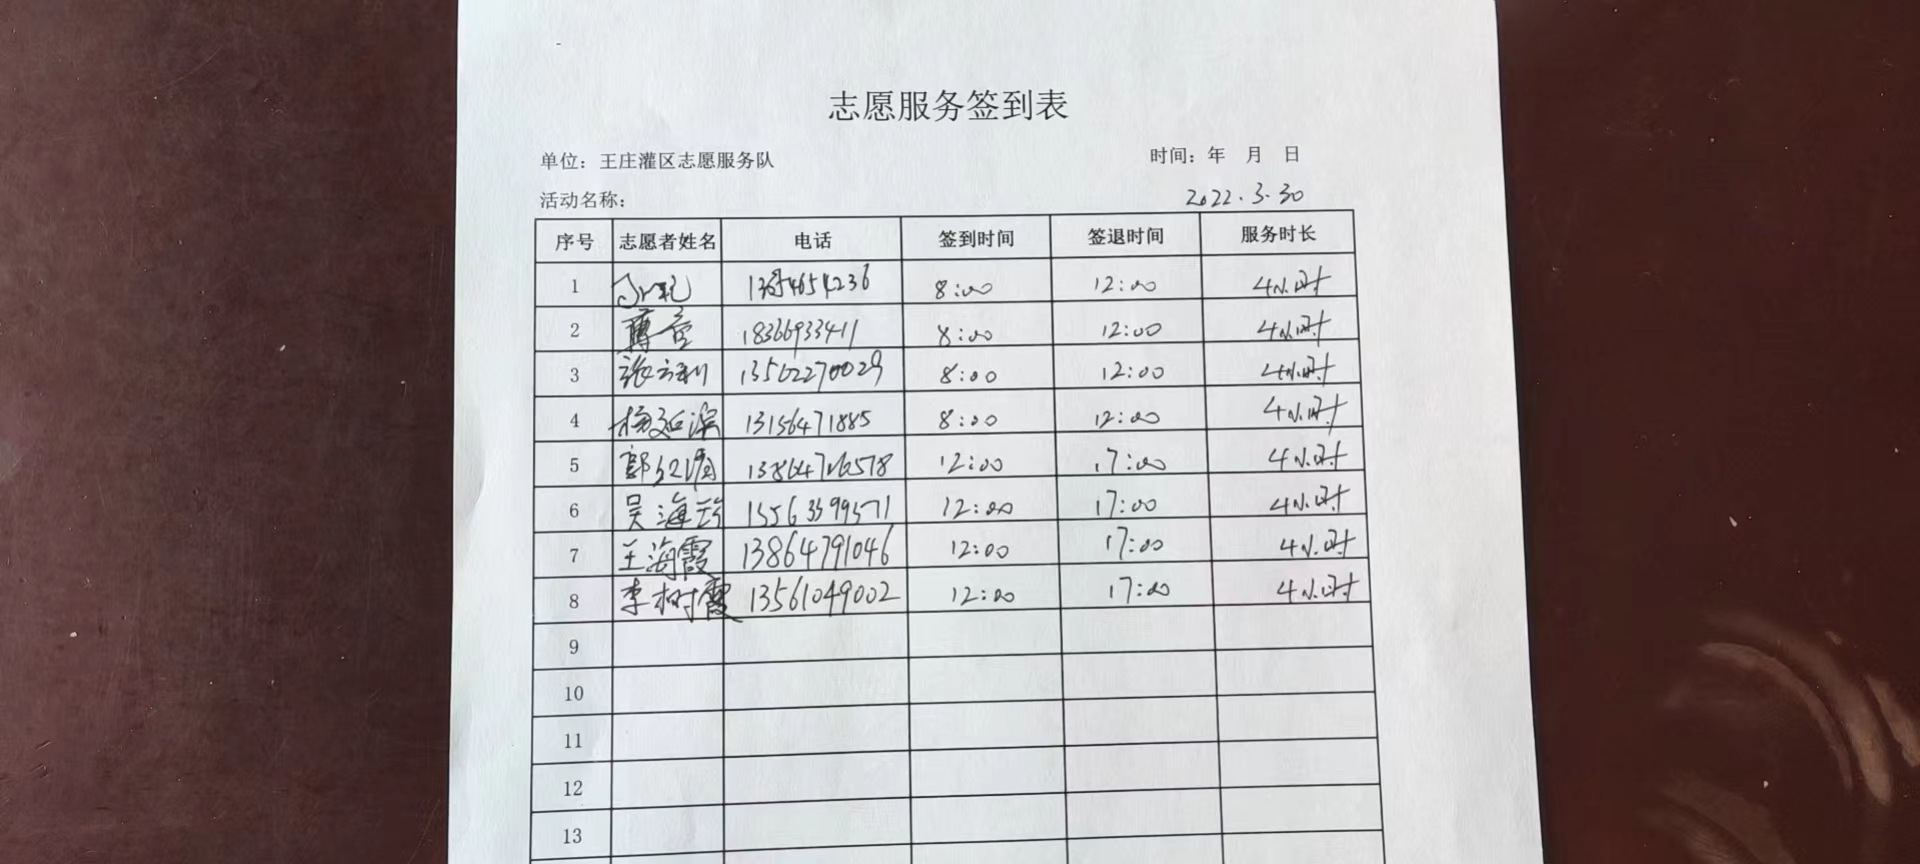 志愿服务签到表
单位：王庄灌区志愿服务队 时间：年 月 日
活动名称： 2022.3.30
序号 志愿者姓名 电话 签到时间 签退时间 服务时长
1 8:00 12:00 4小时
2 18366933411 8:00 12:00 4小时
3 13562270029 8:00 12:00 4小时
4 13156471885 8:00 12:00 4小时
5 12:00 17:00 4小时
6 吴海 15563399571 12:00 17:00 4小时
7 王海霞 13864791046 12:00 17:00 4小时
8 李树霞 13561049002 12:00 17:00 4小时
9
10
11
12
13